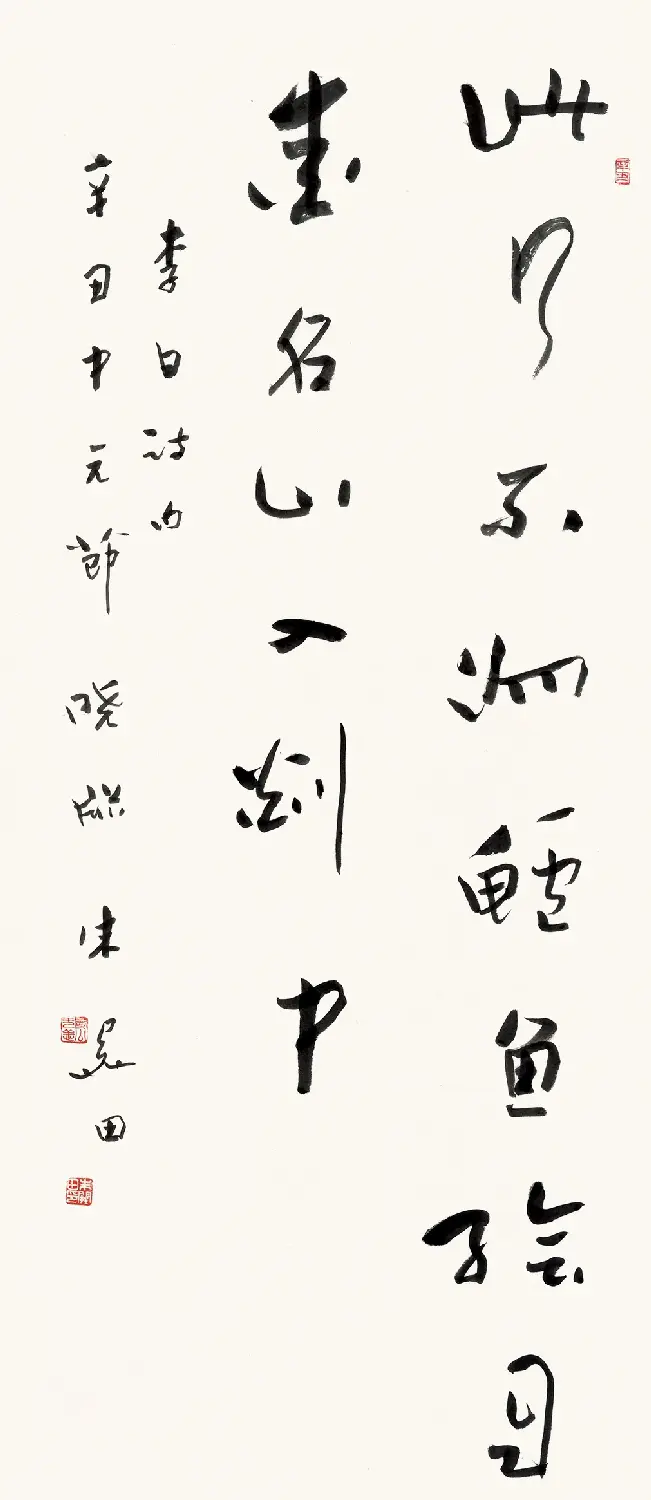 此行不为鲈鱼绘自
爱名山入剡中
李白诗句
辛丑中元節晓 朱关田